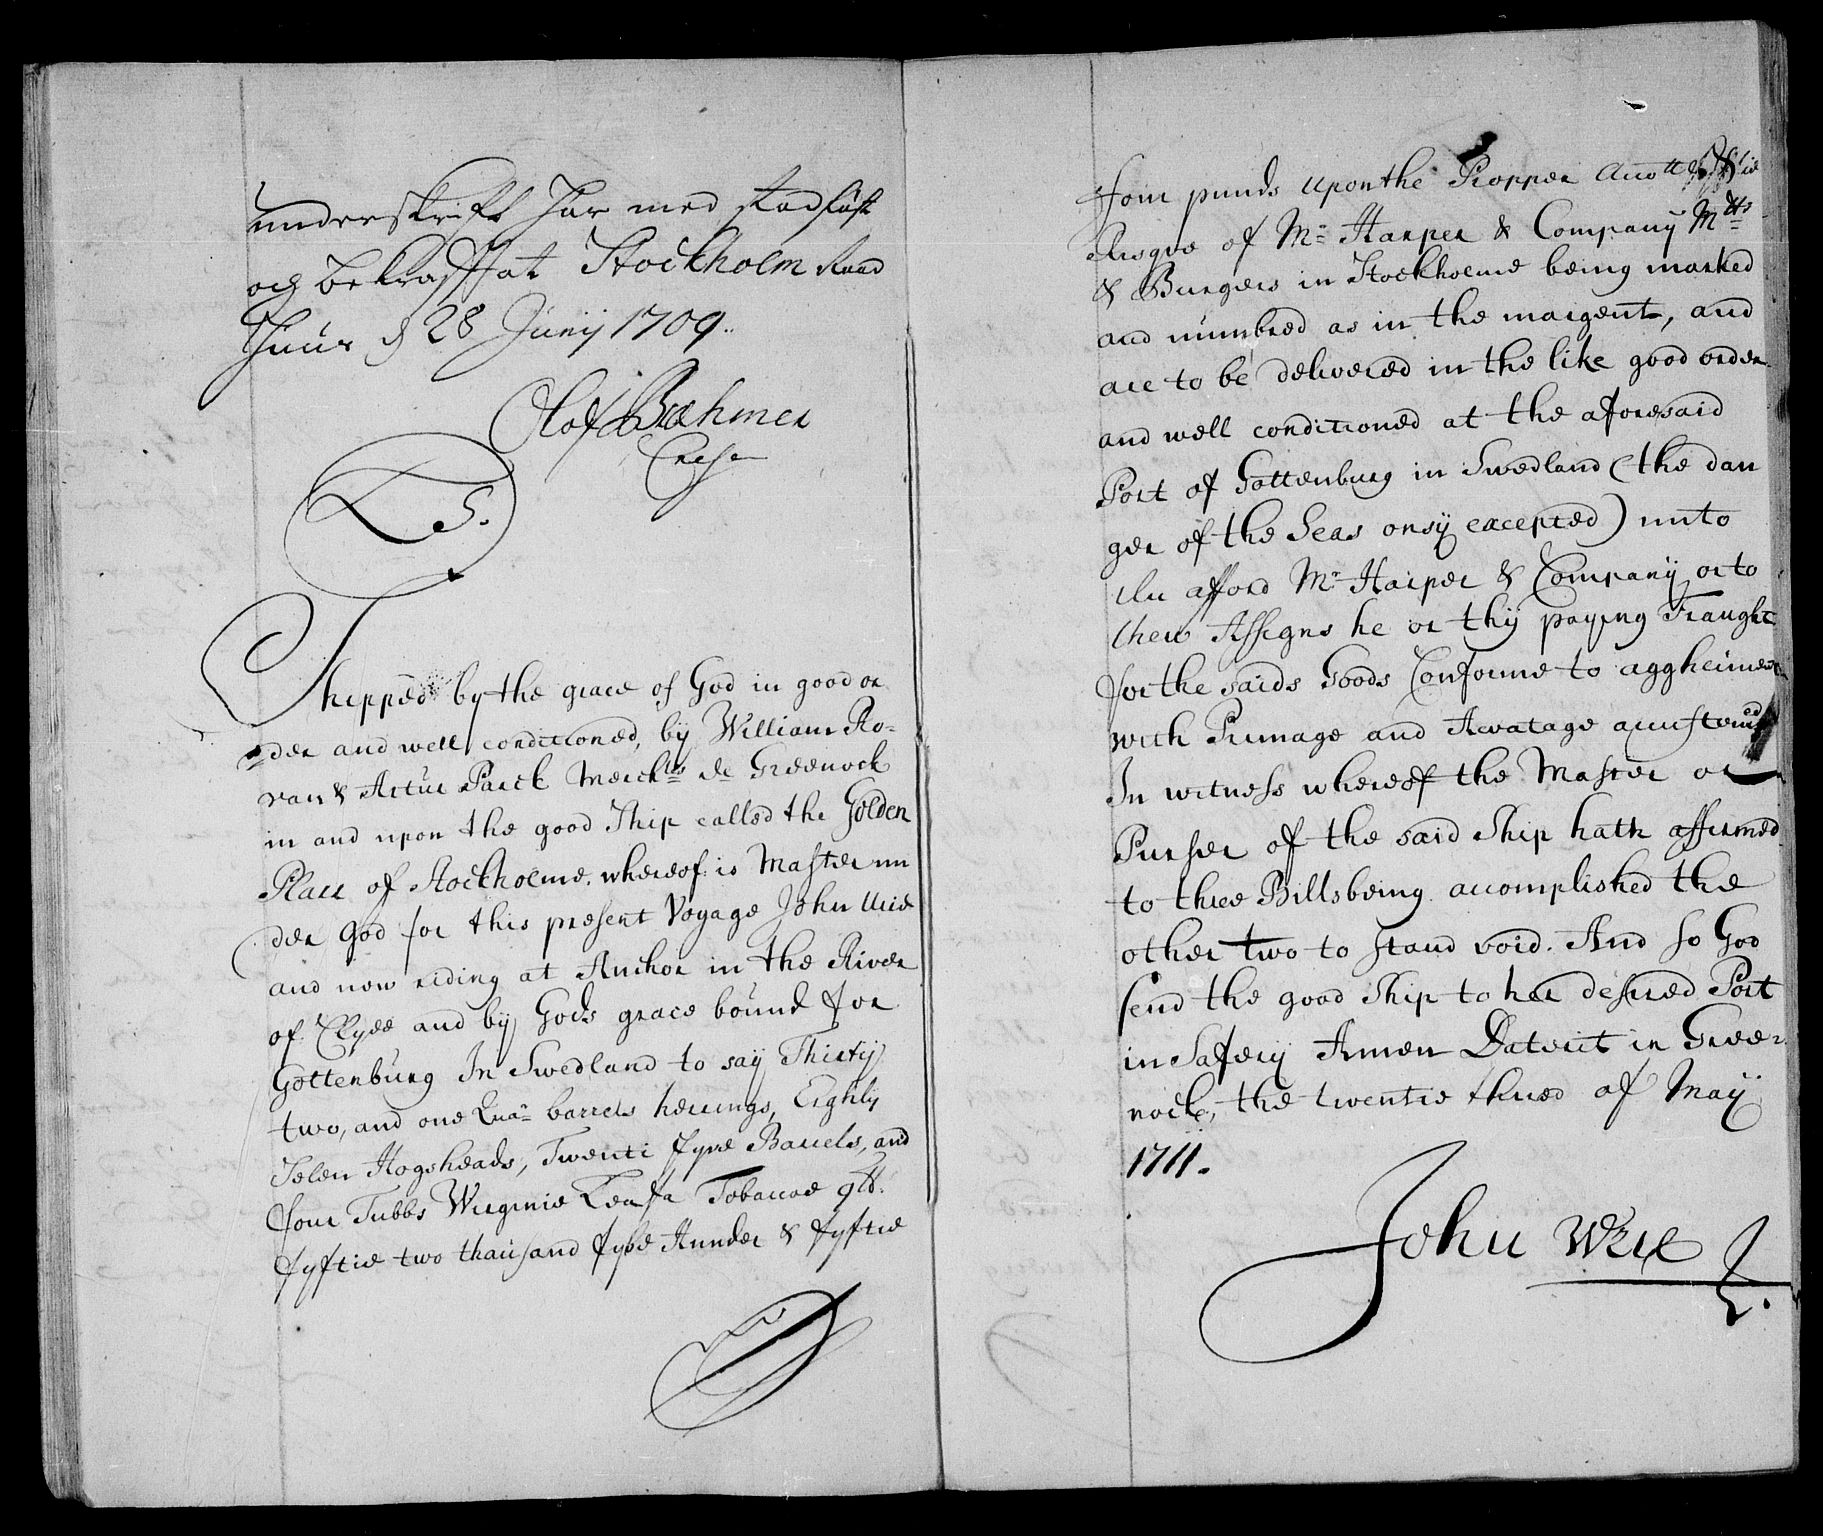 underskrift har med stadfäst
och bekrafftat Stockholm Raad
Huus d 28 Junij 1709.
Olof Bæhmer
LS.
Shipped by the grace of God in good or
der and well conditioned, by William Ro-
van & Artur Parck Merchtts de Greenock
in and upon the good Ship called the Golden
Place of Stockholme. whereof is Master un
der God for this present Voyage John Urie
and now riding at Anchor in the River
of Clyde and by Gods grace bound for
Gottenburg In Swedland to say Thirty
two, and one Quar barrels herrings, Eighty
Seven Hogsheads, Twenti fyve Barrels, and
four Tubbs Wirginie Leafe Tobaccoe qtt.
fyftie two thausand fyve Hunder & fyftie
four punds upon the Propper Accott &
Risqve of Mr Harper & Company Mtts
& Burgers in Stockholme being marked
and numbred as in the margent, and
are to be delivered in the like good order
and well conditioned at the aforesaid
Port of Gottenburg in Swedland (the dan
ger of the Seas onsy excepted) unto
the afford Mr Harper & Company or to
their Assigns he or thy paying Fraught
for the saids Goods Conforme to aggheiment
with Primage and Avatage accustend
In witness whereof the Master or
Purser of the said Ship hath affirmed
to three Bills being accomplished the
other two to stand void. And so God
send the good Ship to her desired Port
in Safery Amen Datveit in Gree-
nock, the twentie thried of May
1711.
John Wrie